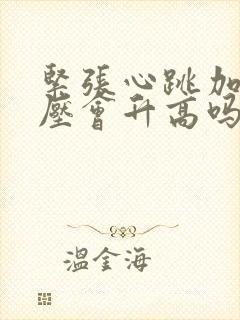 緊張心跳加
壓會升高吗
溫金海